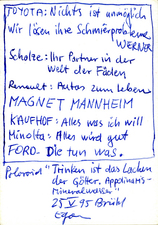 TOYOTA: Nichts ist unmöglich
Wir lösen ihre Schmierprobleme
WERNER
Scholze: Ihr Partner in der
Welt der Fäden
Renault: Autos zum leben
MAGNET MANNHEIM
KAUFHOF: Alles was ich will
Minolta: Alles wird gut
FORD - Die tun was.
Poloroid "Trinken ist das Lachen
der Götter. Appolinaris-
Mineralwasser"
25 V 95 Brühl